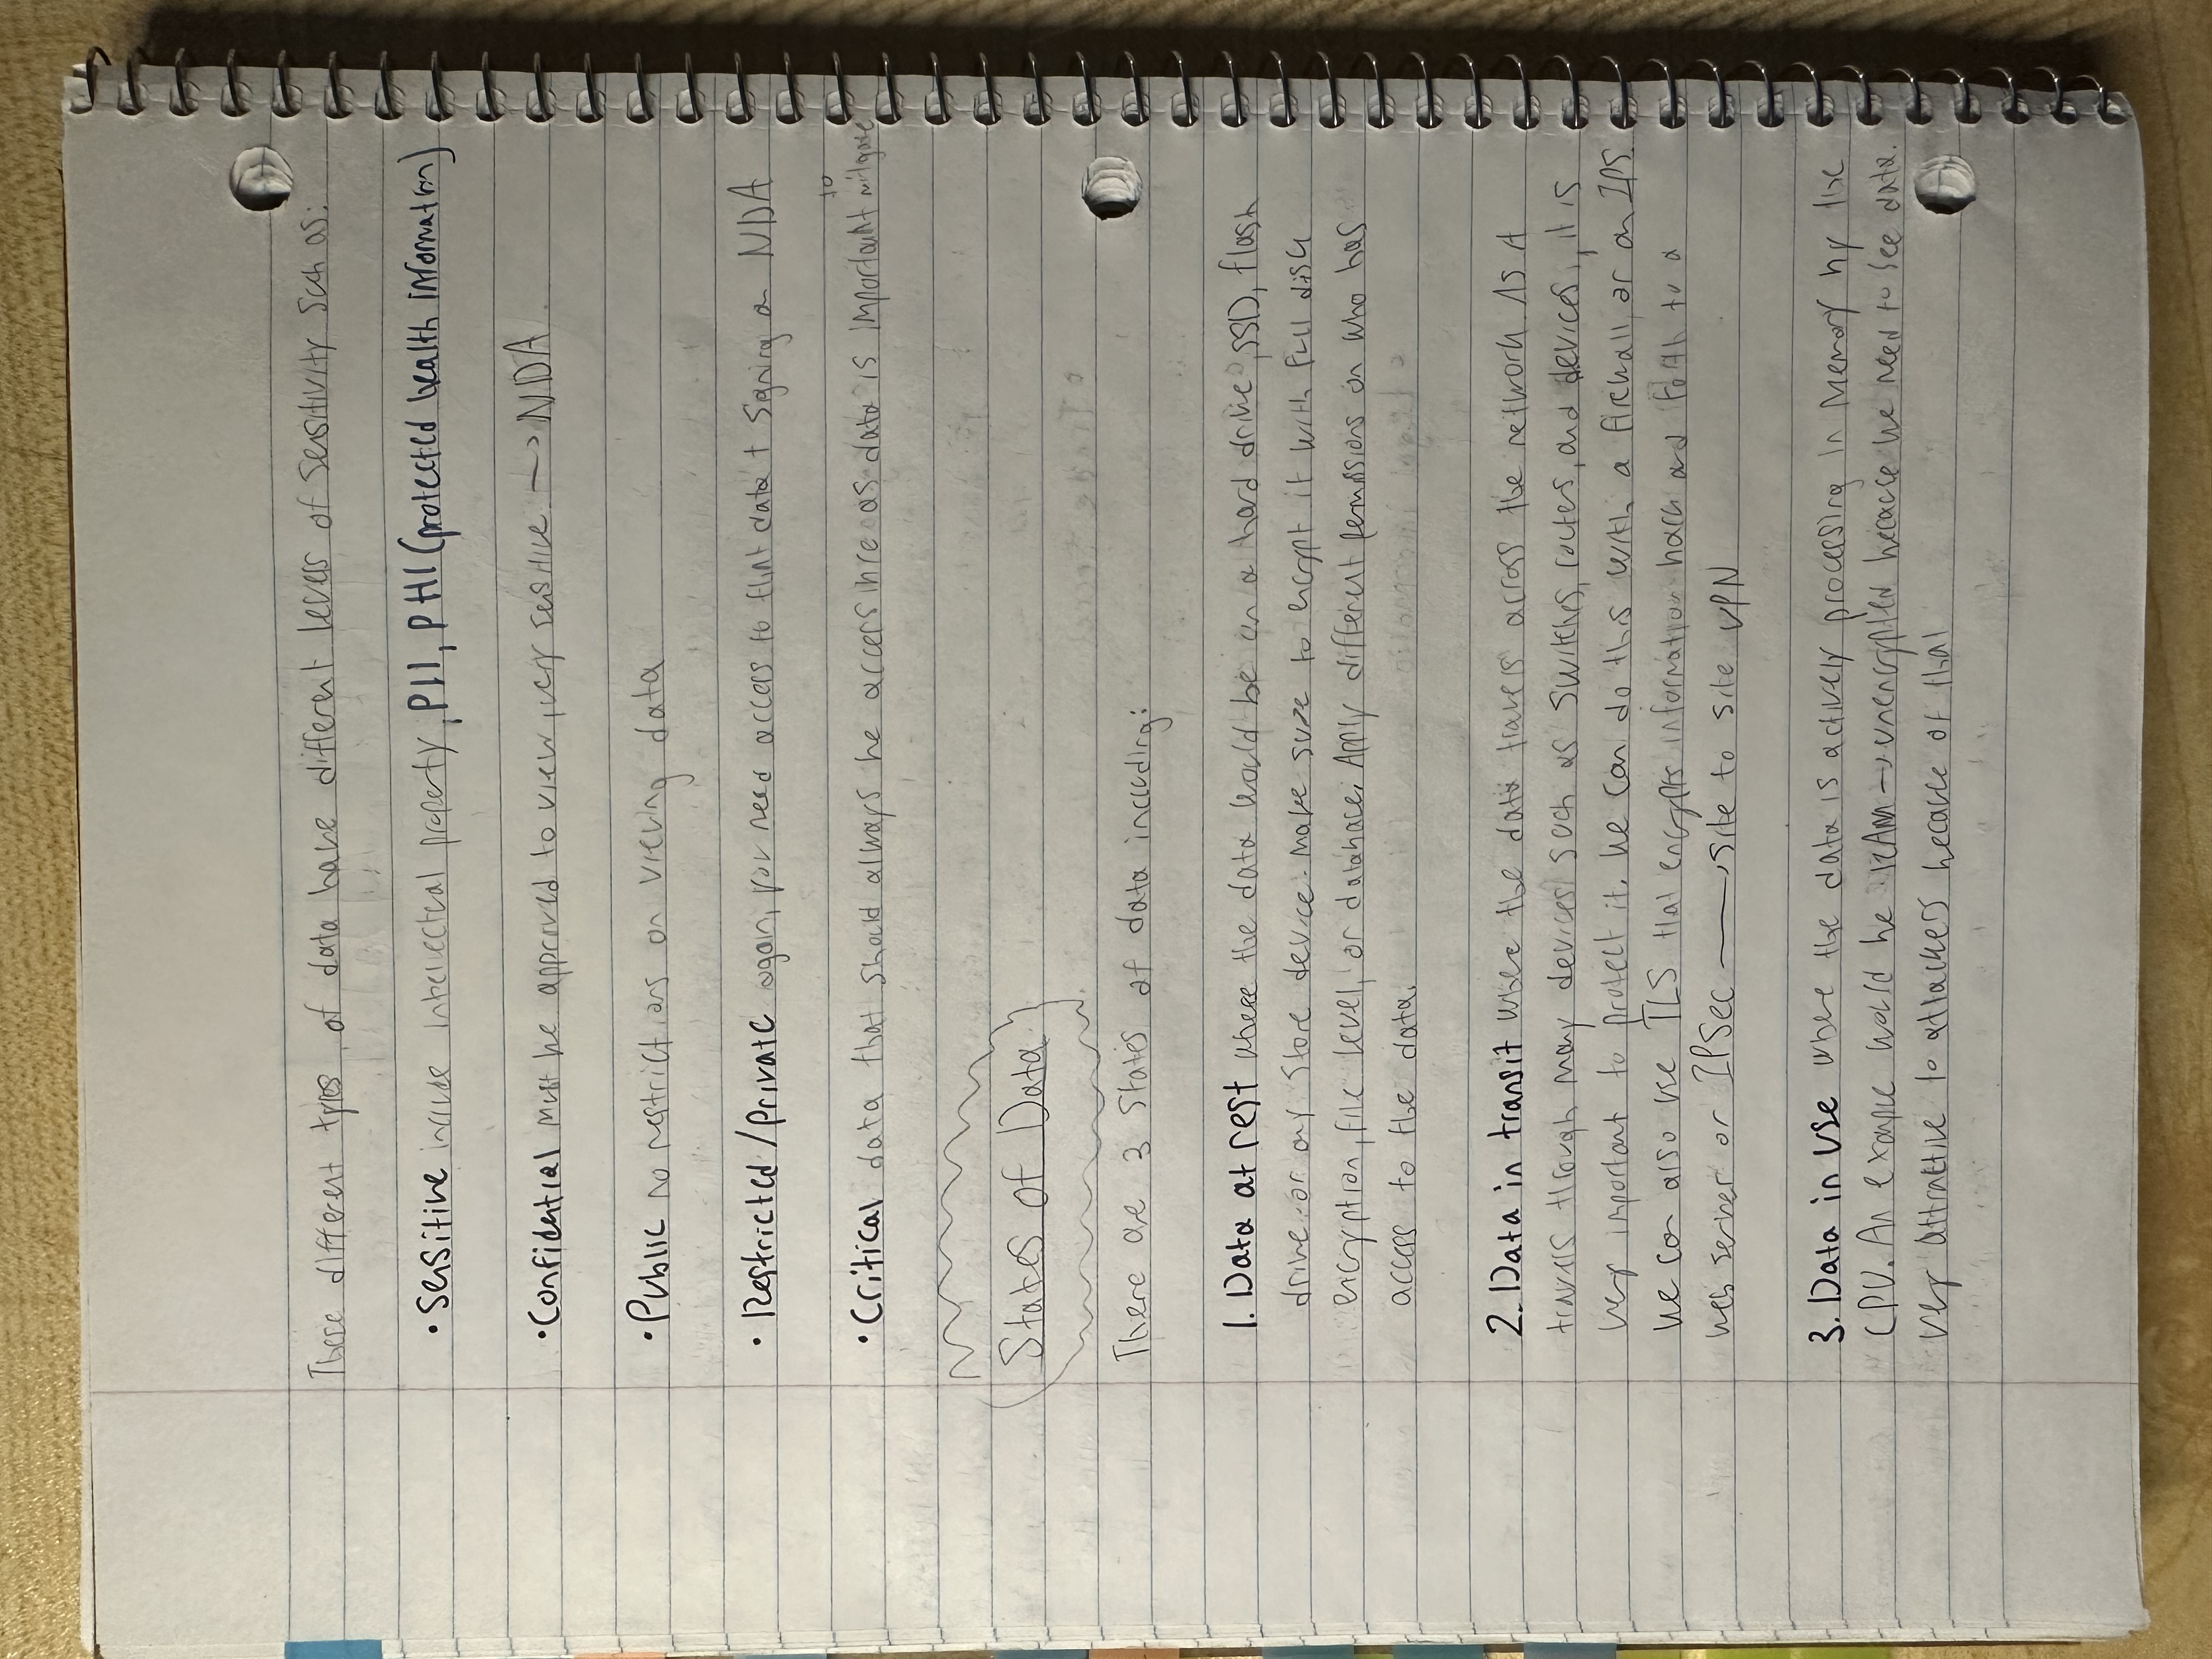 These different types of data have different levels of sensitivity such as:
• Sensitive include intellectual property, PII, PHI (protected health information)
• Confidential must be approved to view, very sensitive → NDA
• Public no restrictions on viewing data
• Restricted/Private again, you need access to that data + signing an NDA
• Critical data that should always be accessible as data is important to mitigate
States of Data
There are 3 states of data including:
1. Data at rest where the data would be on a hard drive, SSD, flash
drive or any store device. Make sure to encrypt it with full disk
encryption, file level, or database. Apply different permissions on who has
access to the data.
2. Data in transit where the data travels across the network. As it
travels through many devices such as switches, routers, and devices, it is
very important to protect it. We can do this with a firewall or an IPS.
We can also use TLS that encrypts information back and forth to a
web server or IPSec → site to site VPN
3. Data in use where the data is actively processing in memory by the
CPU. An example would be RAM → unencrypted because we need to see data.
Very attractive to attackers because of that